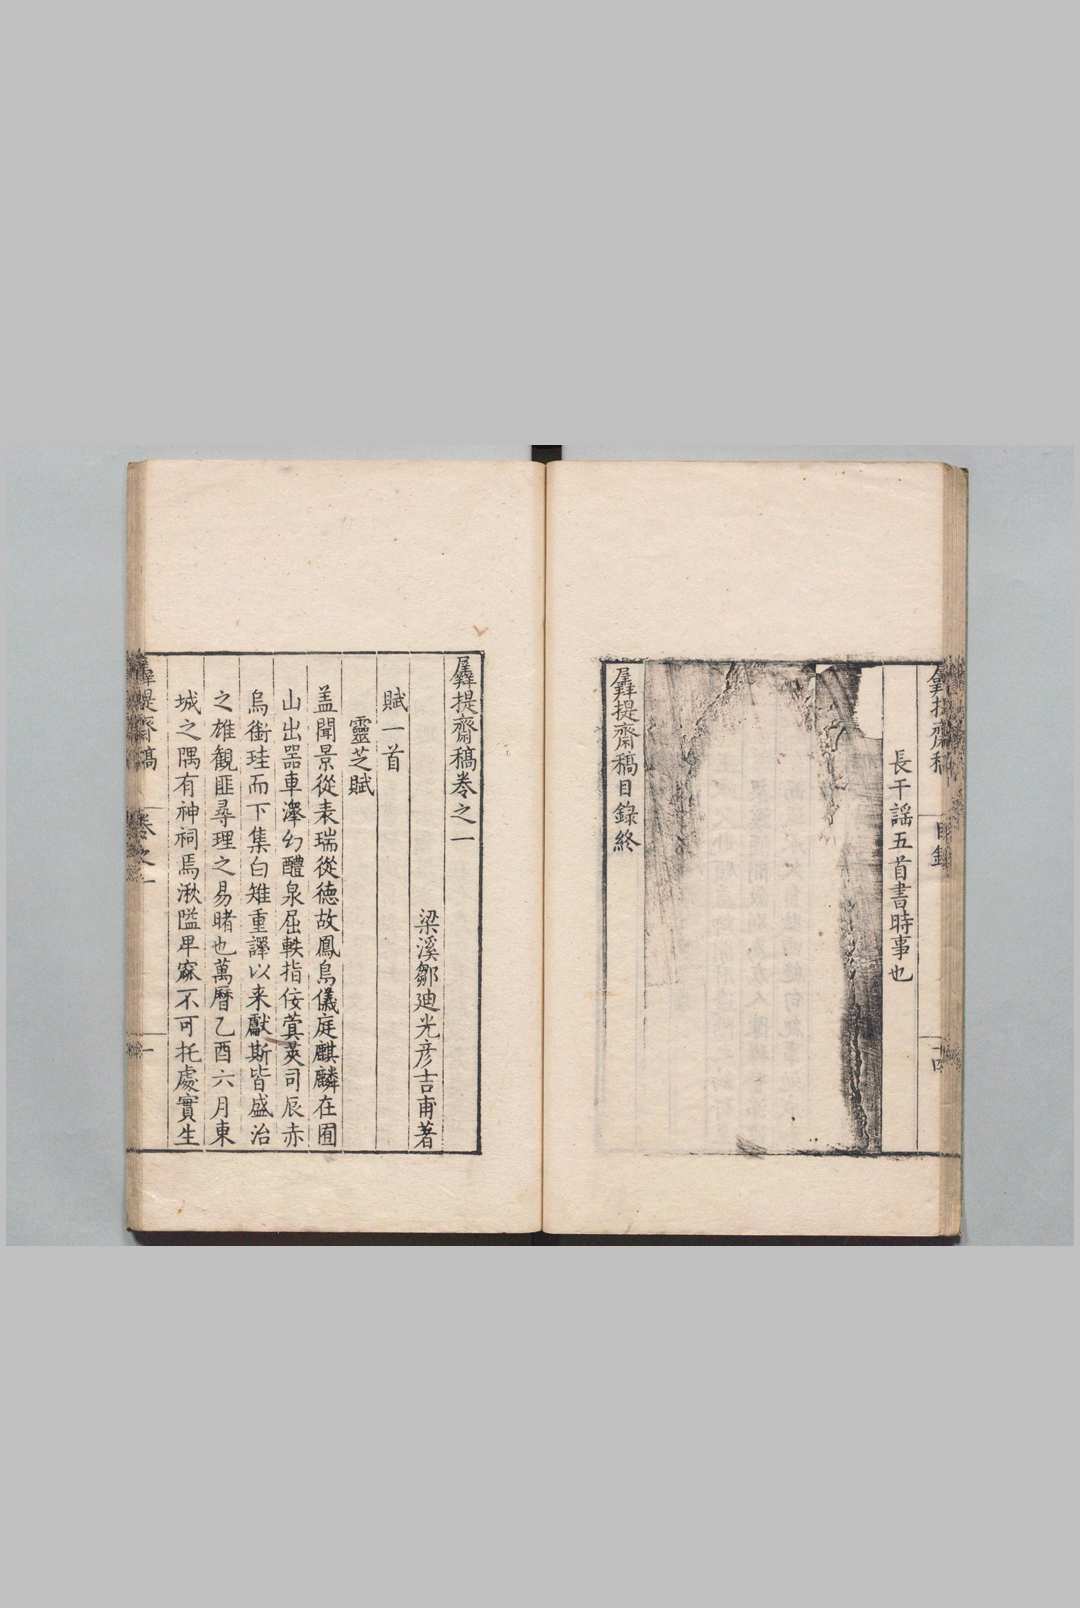 羼提齋稿
目錄
長干謡五首書時事也
羼提齋稿目錄終
羼提齋稿卷之一
梁溪鄒迪光彦吉甫著
賦一首
靈芝賦
盖聞景從表瑞從德故鳳鳥儀庭麒麟在囿
山出器車澤幻醴泉屈軼指佞蓂莢司辰赤
烏銜珪而下集白雉重譯以来獻斯皆盛治
之雄觀匪尋理之易睹也萬曆乙酉六月東
城之隅有神祠焉湫隘卑寐不可托處實生
羼提齋稿
卷之一
一